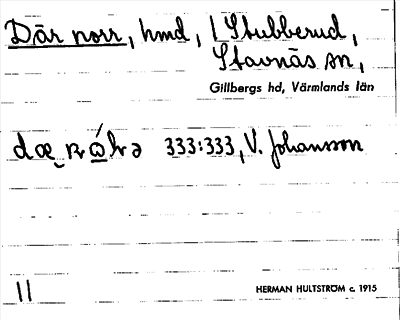 Där norr, hmd, 1 Stubberud,
Stavnäs sn,
Gillbergs hd, Värmlands län
333:333, V. Johansson
11
HERMAN HULTSTRÖM c. 1915